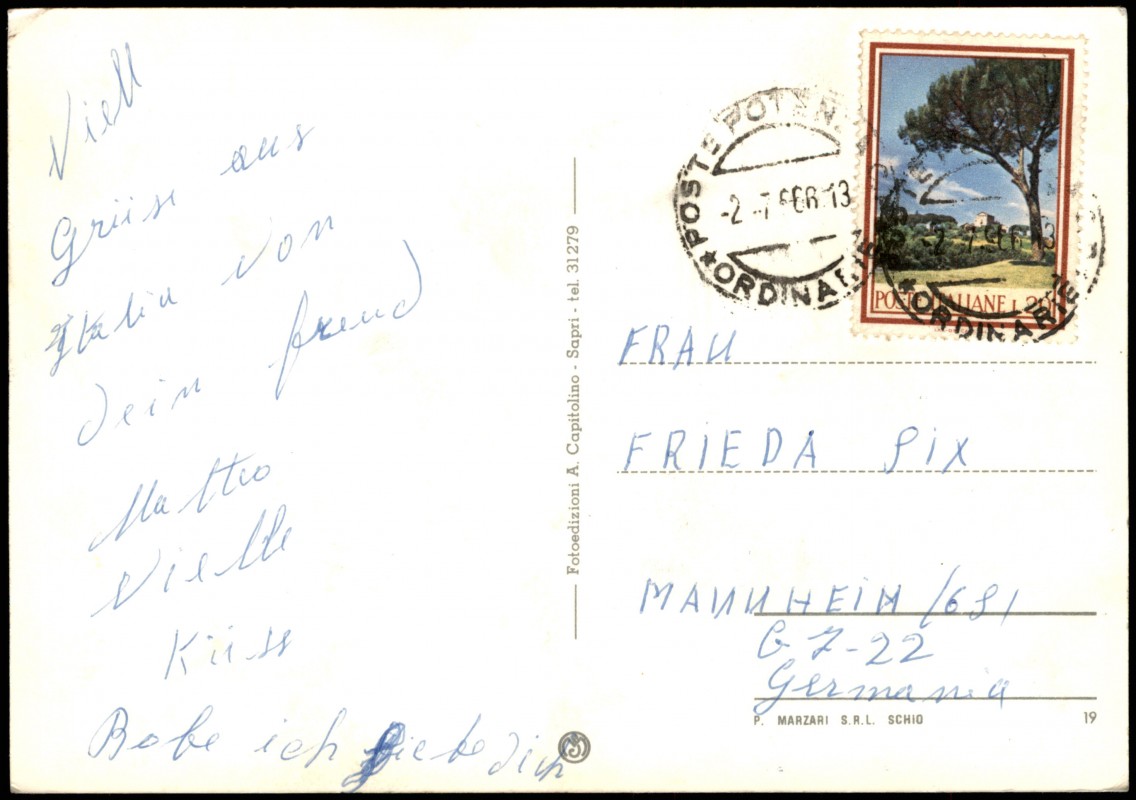 Viell
Grüse aus
Italia von
dein freud
Matteo
Vielle
Küss
Bobe ich liebe dich
Fotoedizioni A. Capitolino - Sapri - tel. 31279
POSTE ITALIANE L. 20
POSTE POTENZA
-2.-7 13
★ ORDINARIE
-2.-7 13
★ ORDINARIE
FRAU
FRIEDA PIX
MANNHEIM /68/
G 7-22
Germania
P. MARZARI S.R.L. SCHIO
19